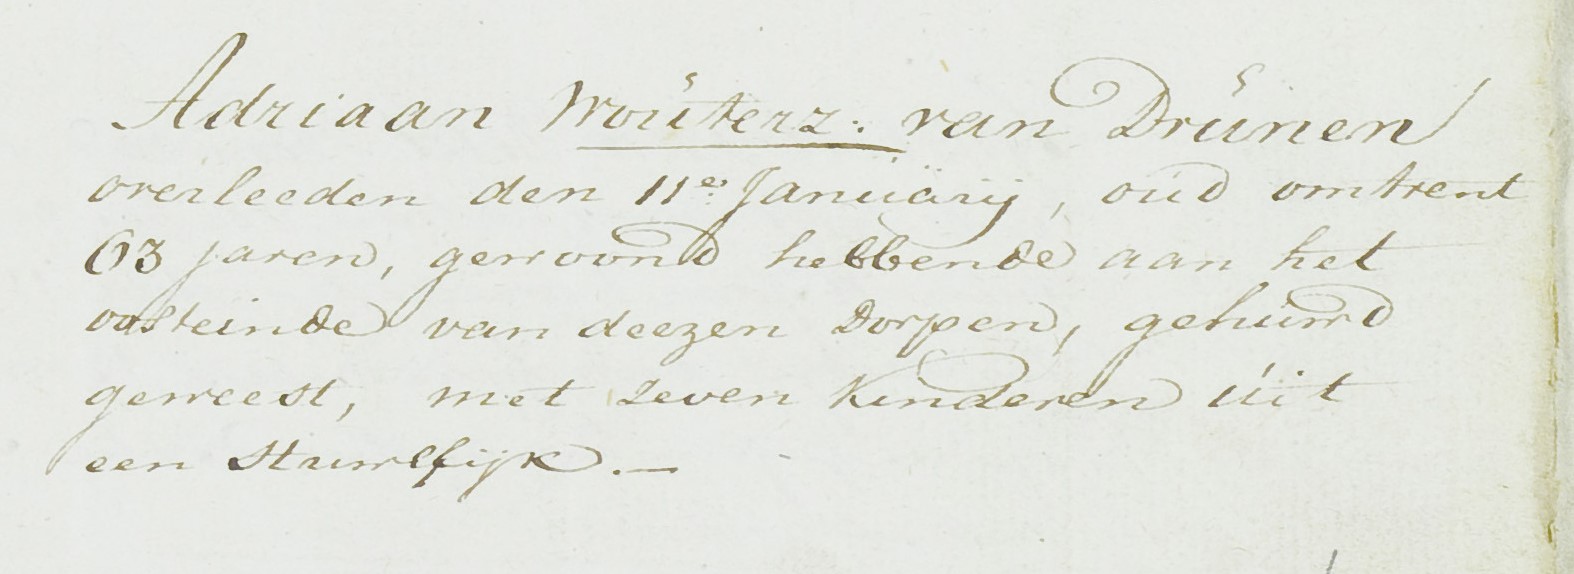 Adriaan Woüterz: van Drünen
overleeden den 11e. Januarij, oud omtrent
63 jaren, gewoond hebbende aan het
oosteinde van deezen Dorpen, gehuwd
geweest, met zeven Kinderen uit
een Huwelijk.—